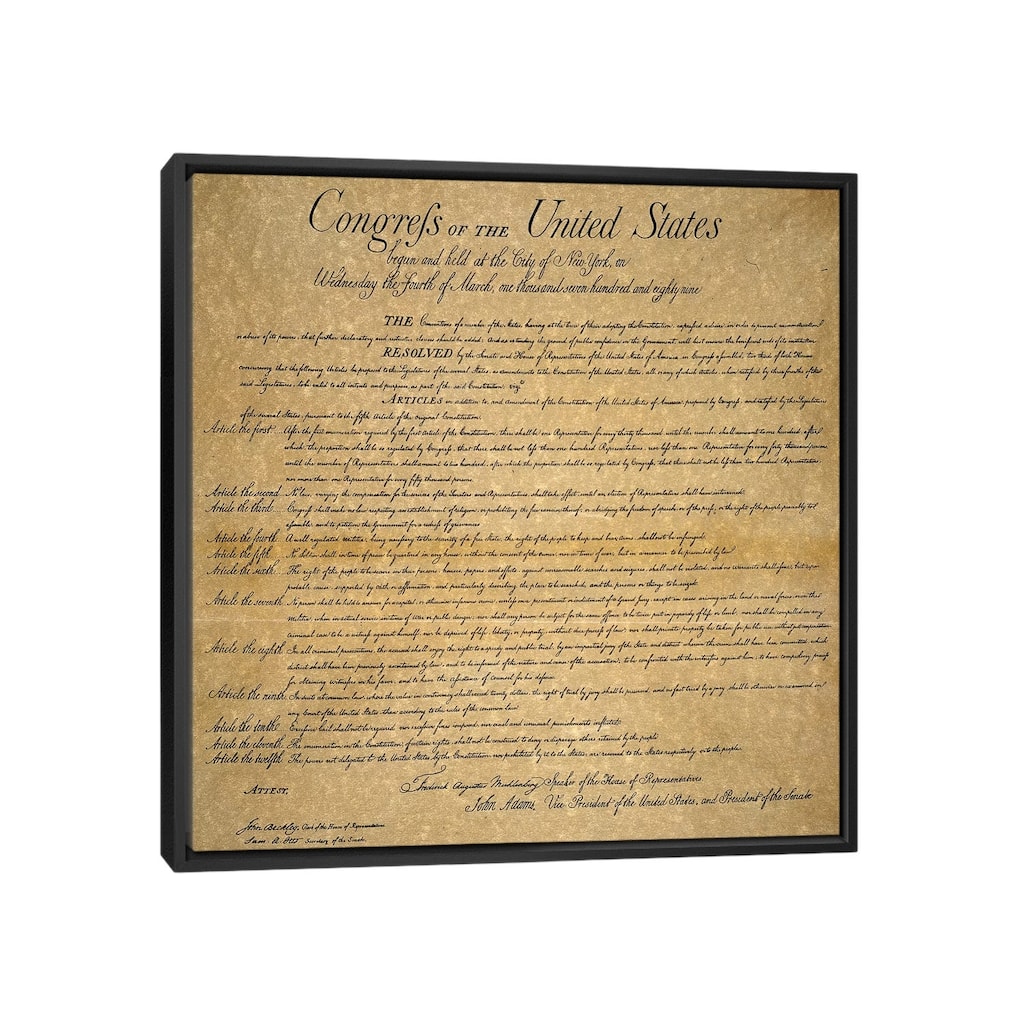 Congreſs OF THE United States
begun and held at the City of New York, on
Wednesday the fourth of March, one thousand seven hundred and eighty nine
THE Conventions of a number of the States, having at the time of their adopting the Constitution, expressed a desire, in order to prevent misconstruction
or abuse of its powers, that further declaratory and restrictive clauses should be added: And as extending the ground of public confidence in the Government, will best ensure the beneficent ends of its institution
RESOLVED by the Senate and House of Representatives of the United States of America, in Congreſs aſsembled, two thirds of both Houses
concurring that the following Articles be proposed to the Legislatures of the several States, as amendments to the Constitution of the United States, all, or any of which Articles, when ratified by three fourths of the
said Legislatures, to be valid to all intents and purposes, as part of the said Constitution. viz.
ARTICLES in addition to, and amendment of the Constitution of the United States of America, proposed by Congreſs, and ratified by the Legislatures
of the several States, pursuant to the fifth Article of the original Constitution.
Article the first. After the first enumeration required by the first Article of the Constitution, there shall be one Representative for every thirty thousand, until the number shall amount to one hundred, after
which, the proportion shall be so regulated by Congreſs, that there shall not be leſs than one hundred Representatives, nor leſs than one Representative for every forty thousand persons,
until the number of Representatives shall amount to two hundred, after which the proportion shall be so regulated by Congreſs, that there shall not be leſs than two hundred Representatives,
nor more than one Representative for every fifty thousand persons.
Article the second No law, varying the compensation for the services of the Senators and Representatives, shall take effect, until an election of Representatives shall have intervened.
Article the third Congreſs shall make no law respecting an establishment of religion, or prohibiting the free exercise thereof; or abridging the freedom of speech, or of the preſs; or the right of the people peaceably to
aſsemble, and to petition the Government for a redreſs of grievances
Article the fourth. A well regulated Militia, being neceſsary to the security of a free State, the right of the people to keep and bear Arms, shall not be infringed.
Article the fifth No Soldier shall, in time of peace be quartered in any house, without the consent of the Owner, nor in time of war, but in a manner to be prescribed by law
Article the sixth The right of the people to be secure in their persons, houses, papers, and effects, against unreasonable searches and seizures, shall not be violated, and no warrants shall iſsue, but upon
probable cause, supported by oath or affirmation, and particularly describing the place to be searched, and the persons or things to be seized.
Article the seventh No person shall be held to answer for a capital, or otherwise infamous crime, unleſs on a presentment or indictment of a Grand Jury, except in cases arising in the land or naval forces, or in the
Militia, when in actual service in time of War or public danger; nor shall any person be subject for the same offence to be twice put in jeopardy of life or limb, nor shall be compelled in any
criminal case to be a witneſs against himself, nor be deprived of life, liberty, or property, without due proceſs of law; nor shall private property be taken for public use without just compensation.
Article the eighth In all criminal prosecutions, the accused shall enjoy the right to a speedy and public trial, by an impartial jury of the State and district wherein the crime shall have been committed, which
district shall have been previously ascertained by law, and to be informed of the nature and cause of the accusation; to be confronted with the witneſses against him; to have compulsory proceſs
for obtaining witneſses in his favor, and to have the aſsistance of counsel for his defence.
Article the ninth. In suits at common law, where the value in controversy shall exceed twenty dollars, the right of trial by jury shall be preserved, and no fact tried by a jury shall be otherwise re-examined in
any Court of the United States, than according to the rules of the common law.
Article the tenth. Exceſsive bail shall not be required, nor exceſsive fines imposed, nor cruel and unusual punishments inflicted.
Article the eleventh. The enumeration in the Constitution, of certain rights, shall not be construed to deny or disparage others retained by the people.
Article the twelfth. The powers not delegated to the United States by the Constitution, nor prohibited by it to the States, are reserved to the States respectively, or to the people.
Frederick Augustus Muhlenberg Speaker of the House of Representatives
ATTEST, John Adams, Vice President of the United States, and President of the Senate
John Beckley, Clerk of the House of Representatives
Sam. A. Otis Secretary of the Senate.